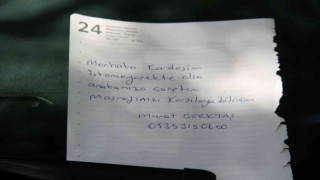 24
Merhaba Kardeşim
İstemeyerekte olsa
arabanıza çarptım
Masrafınızı Karşılayabilirim
Murat BEKTAŞ